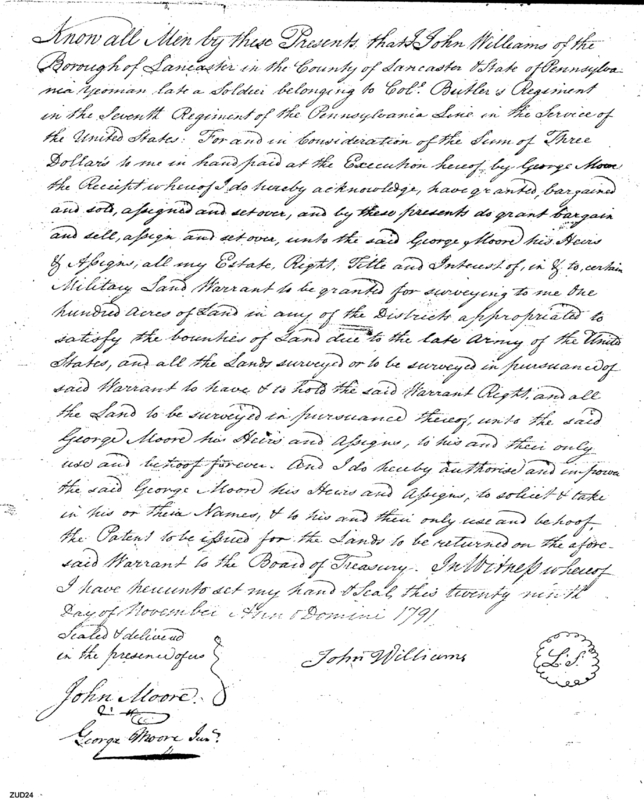 Know all Men by these Presents, that I John Williams of the
Borough of Lancaster in the County of Lancaster & State of Pennsylva
nia Yeoman, late a Soldier belonging to Colo. Butler's Regiment
in the Seventh Regiment of the Pennsylvania Line in the Service of
the United States: For and in Consideration of the Sum of Three
Dollars to me in hand paid at the Execution hereof, by George Moore
the Receipt whereof I do hereby acknowledge, have granted, bargained
and sold, assigned and set over, and by these presents do grant bargain
and sell, assign and set over, unto the said George Moore his Heirs
& Assigns, all my Estate, Right, Title and Interest of, in & to, certain
Military Land Warrant to be granted for surveying to me One
hundred Acres of Land in any of the Districts appropriated to
satisfy the bounties of Land due to the late Army of the United
States, and all the Lands surveyed or to be surveyed in pursuance of
said Warrant to have & to hold the said Warrant Right, and all
the Land to be surveyed in pursuance thereof, unto the said
George Moore his Heirs and Assigns, to his and their only
use and behoof forever. And I do hereby authorise and impower
the said George Moore his Heirs and Assigns, to solicit & take
in his or their Names, & to his and their only use and behoof,
the Patent to be issued for the Lands to be returned on the afore-
said Warrant to the Board of Treasury. In Witness whereof
I have hereunto set my hand & Seal this twenty ninth
Day of November Anno Domini 1791
Sealed & delivered
in the presence of us
John Williams
L.S.
John Moore.
George Moore Junr.
ZUD24